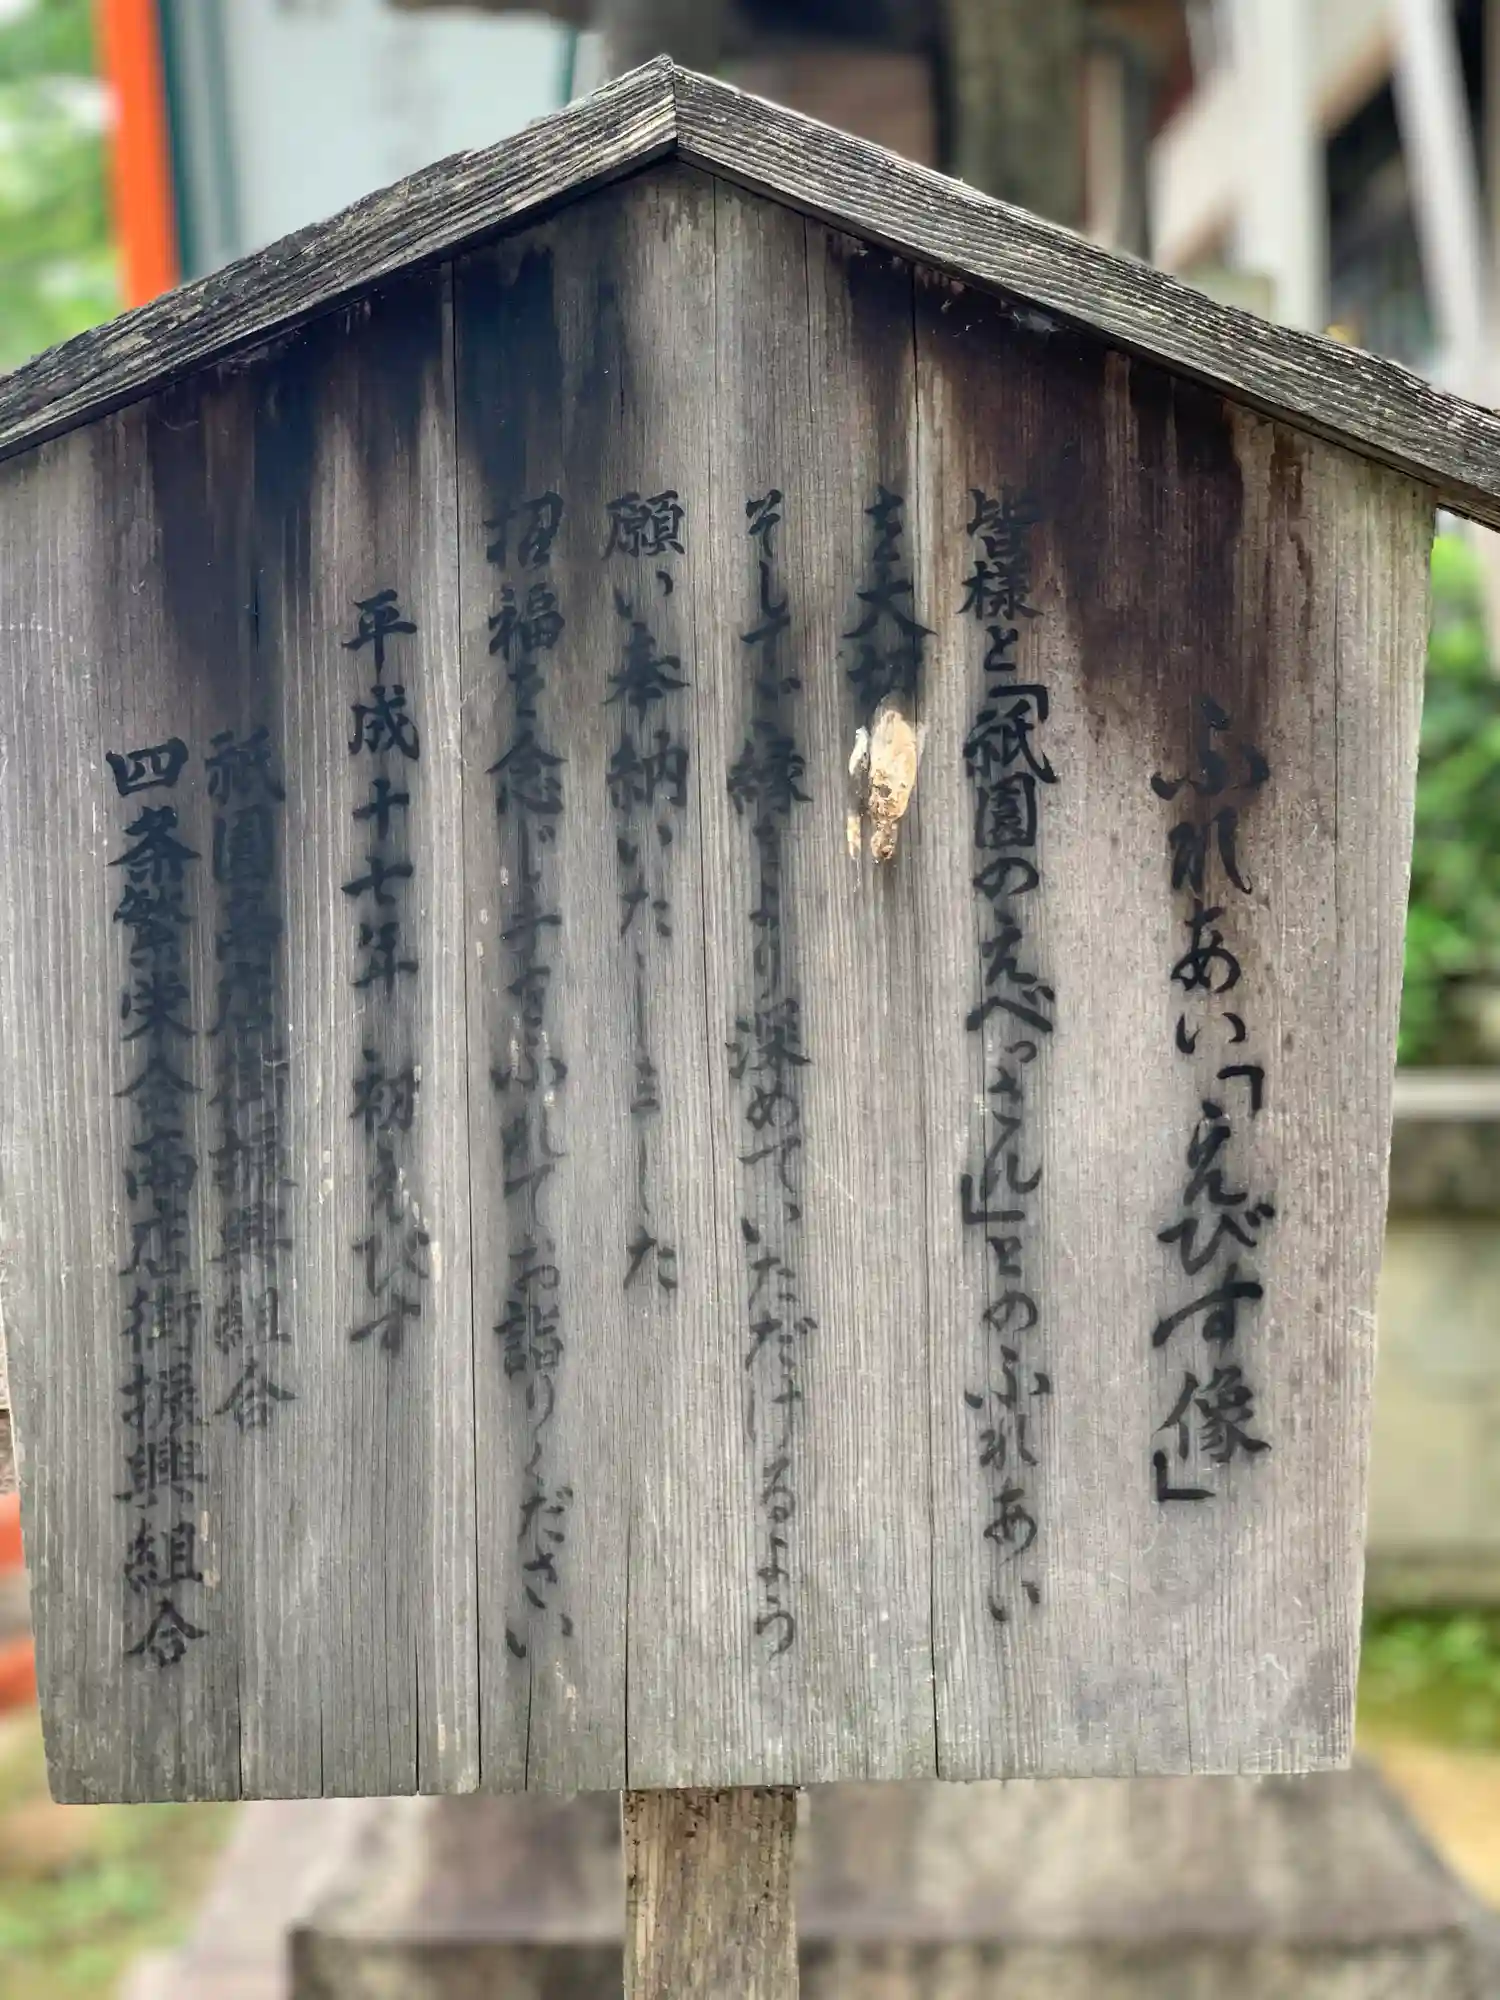 ふれあい「えびす像」
皆様と「祇園のえべっさん」とのふれあい
を大切
そしてご縁をより深めていただけるよう
願い奉納いたしました
招福を念じ手をふれてお詣りください
平成十七年 初えびす
祇園商店街振興組合
四条繁栄会商店街振興組合